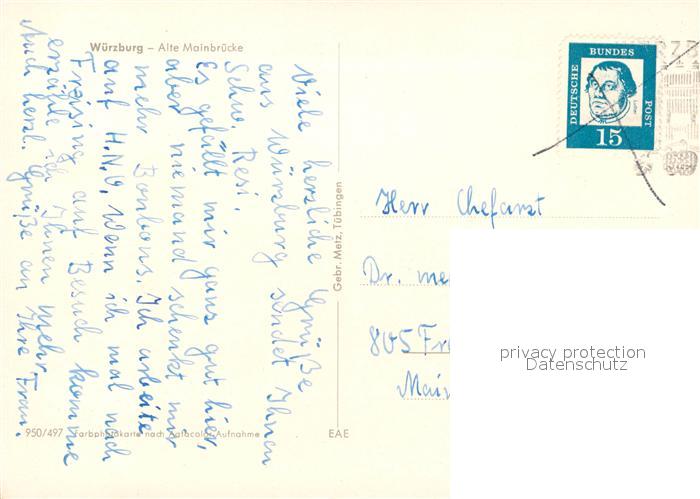 Würzburg – Alte Mainbrücke
Viele herzliche Grüße
aus Würzburg sendet Ihnen
Schw. Resi.
Es gefällt mir ganz gut hier,
aber niemand schenkt mir
mehr Bonbons. Ich arbeite
auf H.N.O. Wenn ich mal nach
Freising auf Besuch komme
erzähle ich Ihnen mehr.
Auch herzl. Grüße an Ihre Frau.
950/497 Farbphotokarte nach Agfacolor-Aufnahme
EAE
Gebr. Metz, Tübingen
DEUTSCHE BUNDES POST
Luther
15
Herr Chefarzt
Dr. me
805 Fre
Main
privacy protection
Datenschutz